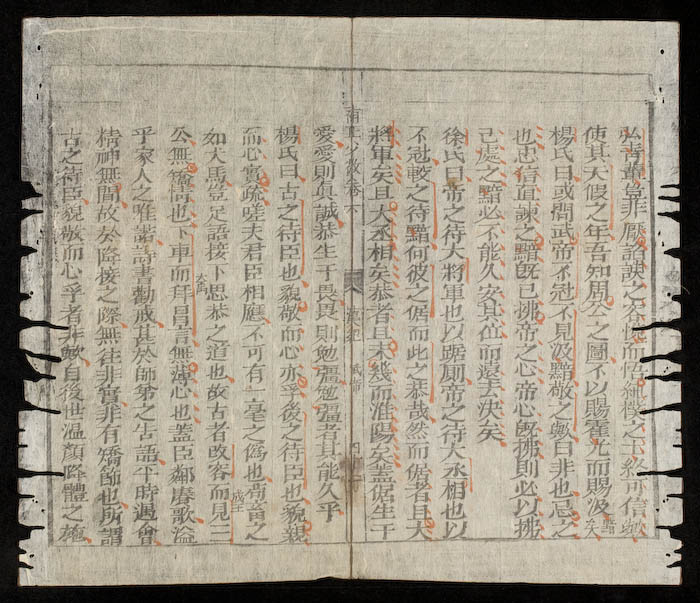 非厭諸諛之容悅而悟之下終可信歟
使其天假之年吾知周公之圖不以賜霍光而賜汲大夫
楊氏曰或問武帝不冠不見汲黯敬之歟曰非也忌之
也忠信直諫之黯旣已拂帝之心帝心旣拂則必以拂
己處之黯必不能久安其位而遠去決矣
徐氏曰帝之待大將軍也以踞厠帝之待大丞相也以
不冠較之待黯何彼之倨而此之恭哉然而倨者且大
將軍矣且大丞相矣恭者且未幾而淮陽矣蓋倨生于
卷下 漢紀 武帝 四
愛愛則眞誠恭生于畏畏則勉彊勉彊者其能久乎
楊氏曰古之待臣也貌敬而心亦孚後之待臣也貌親
而心實疏嗟夫君臣相應不可有一毫之僞也胥畜之
如犬馬豈足語接下思恭之道也故古者改容而見三
成王
公無矯情也下車而拜昌言無薄心也蓋臣鄰賡歌溢
大禹
乎家人之唯諾詩書勸戒甚於師弟之告語平時遇會
精神無間故於降接之際無往非實非有矯飾也所謂
古之待臣貌敬而心孚者非歟自後世溫顏降體之